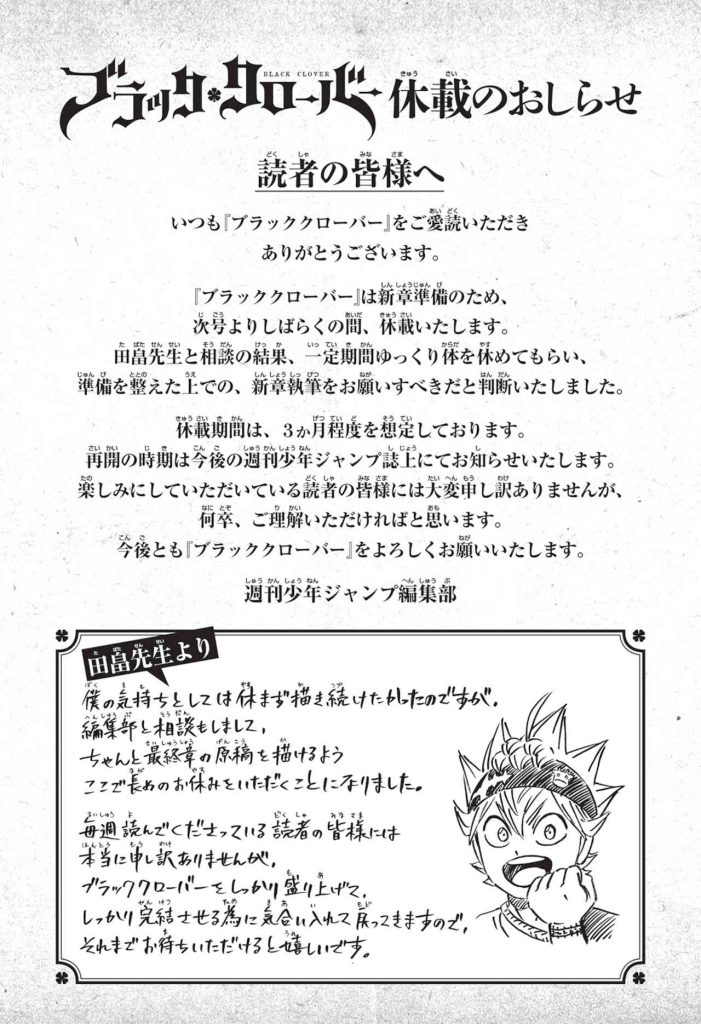 ブラッククローバー 休載のおしらせ
BLACK CLOVER
読者の皆様へ
いつも『ブラッククローバー』をご愛読いただき
ありがとうございます。
『ブラッククローバー』は新章準備のため、
次号よりしばらくの間、休載いたします。
田畠先生と相談の結果、一定期間ゆっくり体を休めてもらい、
準備を整えた上での、新章執筆をお願いすべきだと判断いたしました。
休載期間は、3か月程度を想定しております。
再開の時期は今後の週刊少年ジャンプ誌上にてお知らせいたします。
楽しみにしていただいている読者の皆様には大変申し訳ありませんが、
何卒、ご理解いただければと思います。
今後とも『ブラッククローバー』をよろしくお願いいたします。
週刊少年ジャンプ編集部
田畠先生より
僕の気持ちとしては休まず描き続けたかったのですが、
編集部と相談もしまして、
ちゃんと最終章の原稿を描けるよう
ここで長めのお休みをいただくことになりました。
毎週読んでくださっている読者の皆様には
本当に申し訳ありませんが、
ブラッククローバーをしっかり盛り上げて、
しっかり完結させる為に気合い入れて戻ってきますので、
それまでお待ちいただけると嬉しいです。